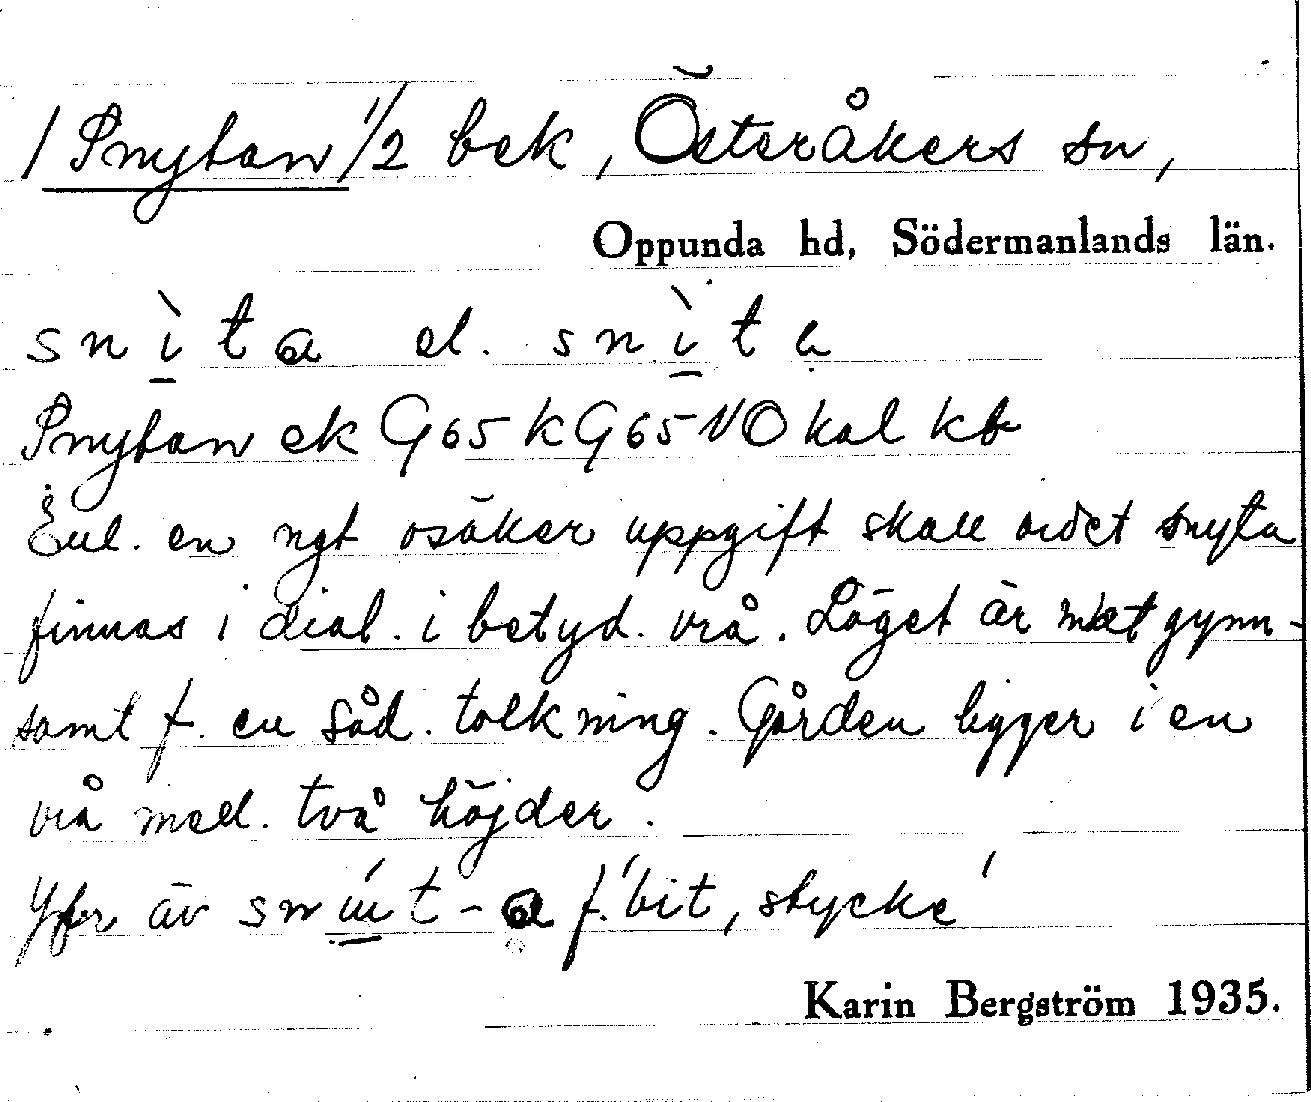 / Snytan 1/2 bek, Österåkers sn,
Oppunda hd, Södermanlands län.
snìta el. snìta
Snytan ek G65 k G65 NO kal kb
Enl. en ngt osäker uppgift skall ordet snyta
finnas i dial. i betyd. vrå. Läget är mkt gynn-
samt f. en såd. tolkning. Gården ligger i en
vrå mell. två höjder.
Yfr äv t-a f. 'bit, stycke'
Karin Bergström 1935.